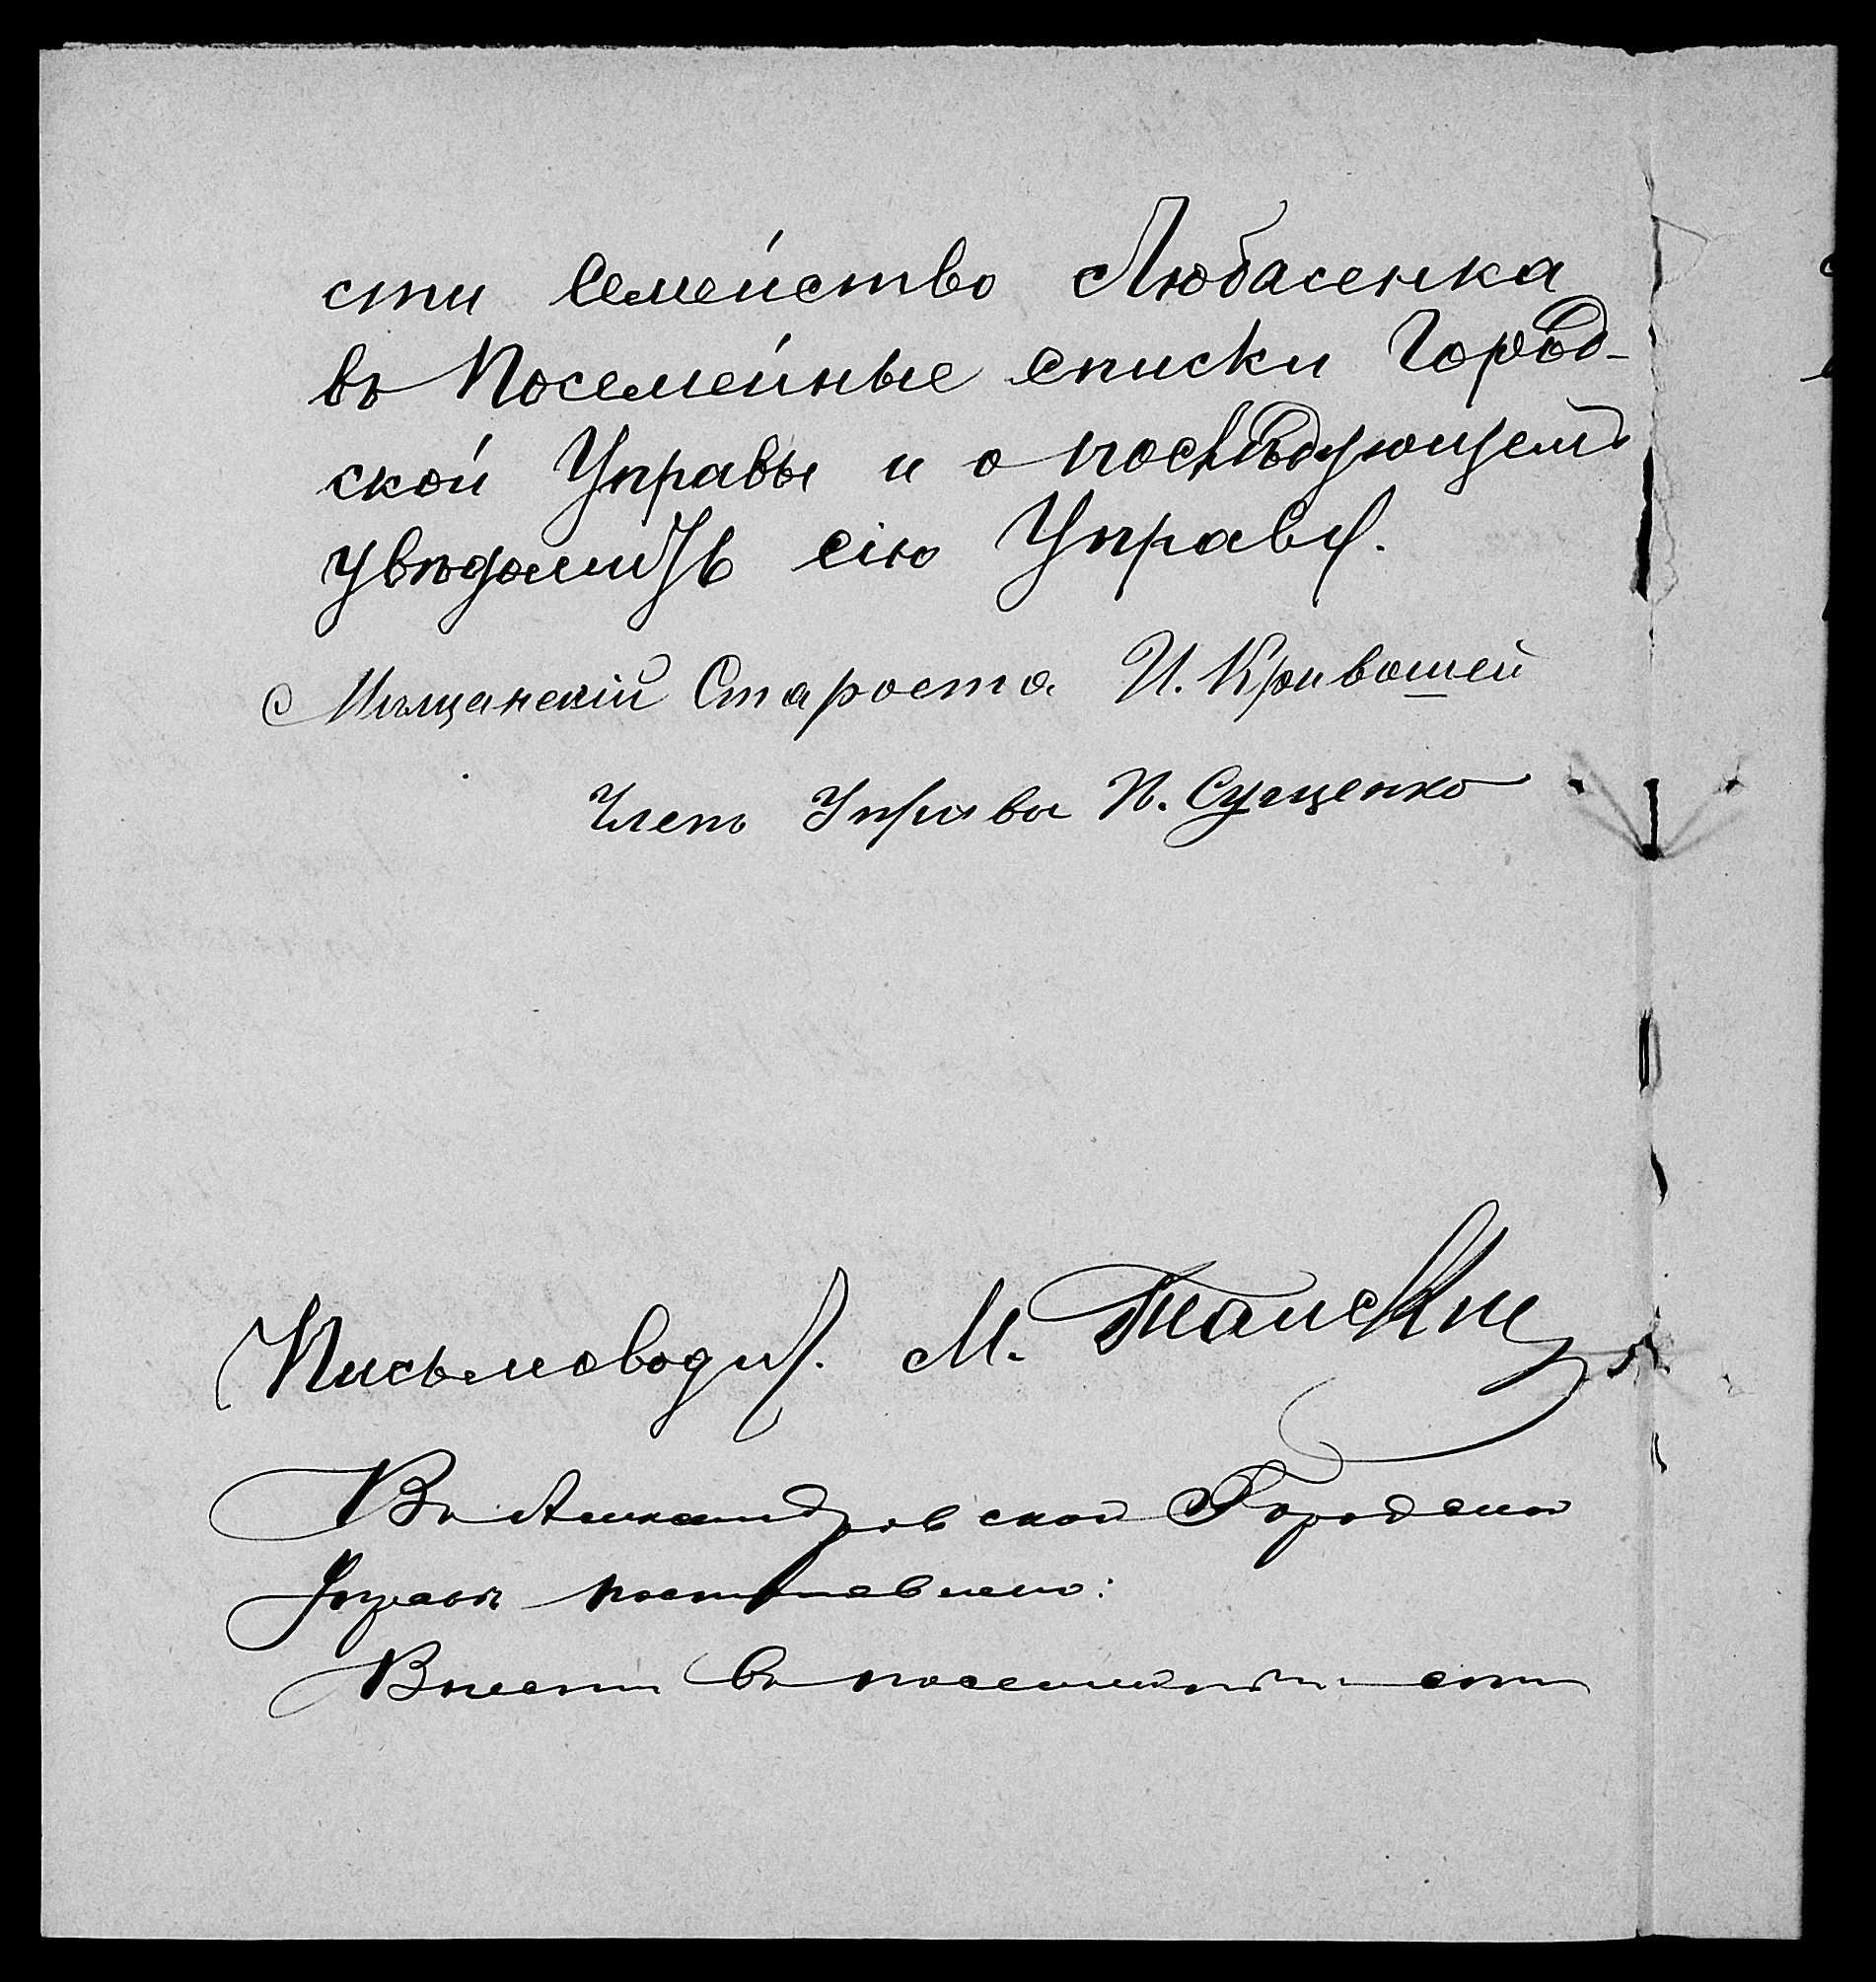 сти Семейство Любасенка
въ Посемейные списки Город-
ской Управы и о послѣдующемъ
увѣдомить сію Управу.
Мѣщанскій Староста И. Кривошей
Членъ Управы П. Сущенко
Письмоводит. М.
Въ Александровской Городской
Управѣ постановлено:
Внести въ посемейный спи